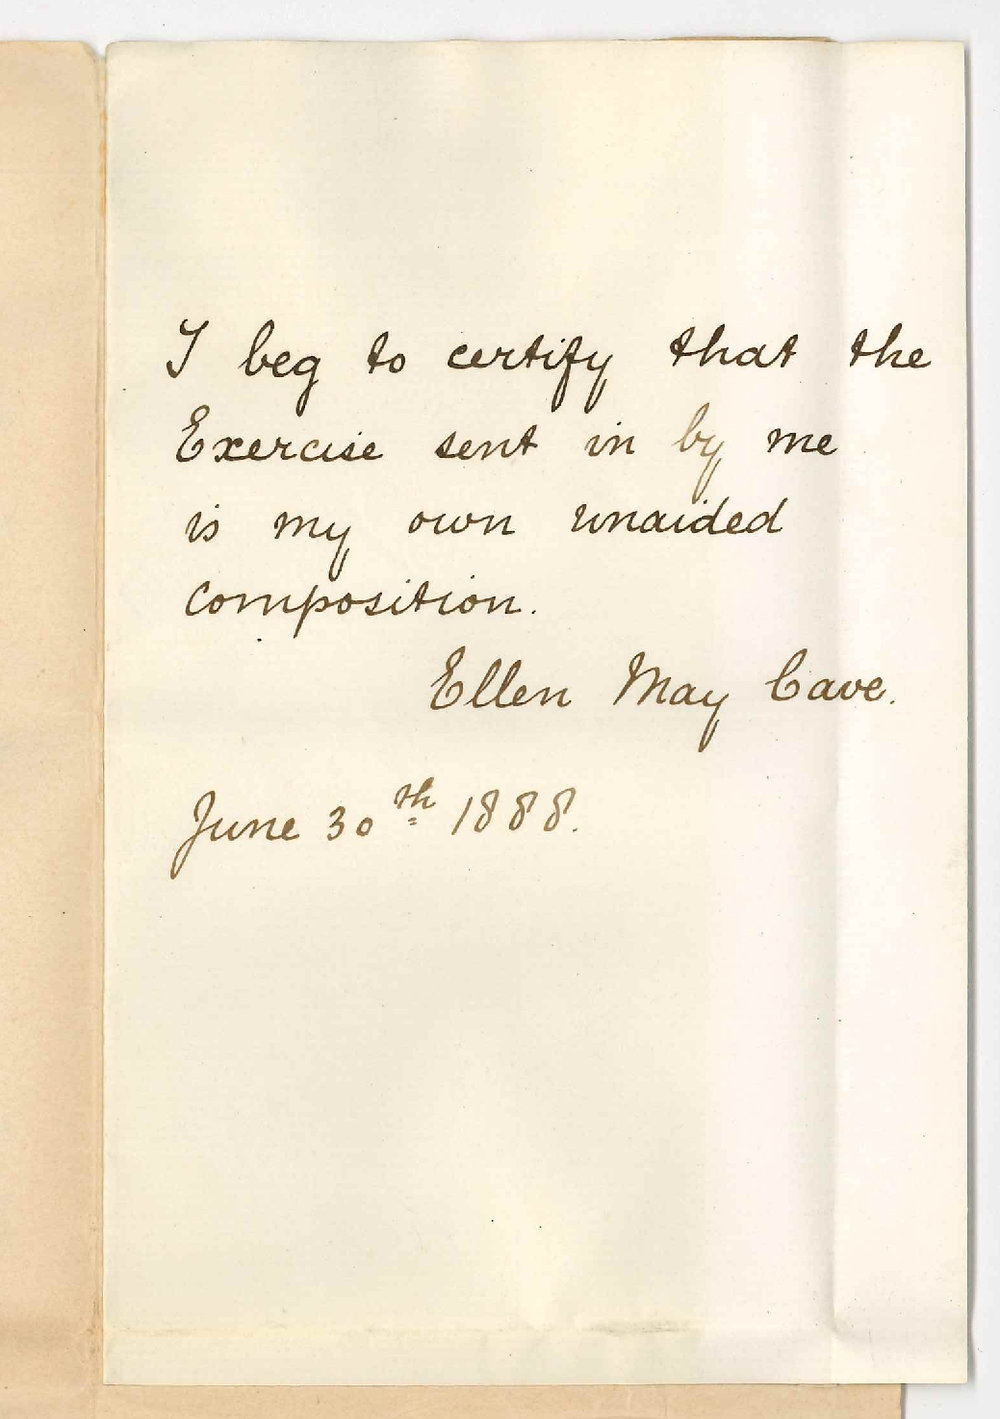 I beg to certify that the
Exercise sent in by me
is my own unaided
composition.
Ellen May Cave.
June 30th 1888.